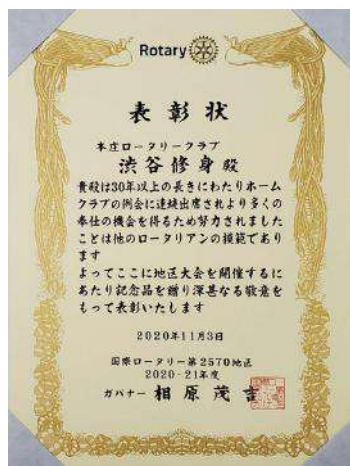 Rotary
表彰状
本庄ロータリークラブ
渋谷修身殿
貴殿は30年以上の長きにわたりホーム
クラブの例会に連続出席されより多くの
奉仕の機会を得るため努力されました
ことは他のロータリアンの模範であり
ます
よってここに地区大会を開催するに
あたり記念品を贈り深甚なる敬意を
もって表彰いたします
2020年11月3日
国際ロータリー第2570地区
2020-21年度
ガバナー 相原茂吉